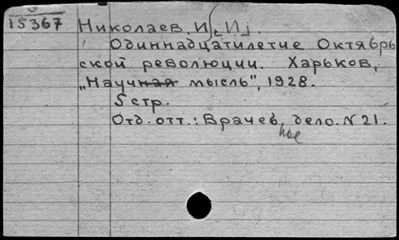 15367
Николаев, И. И.
Одиннадцатилетие Октябрь
ской революции. Харьков,
„Научная мысль", 1928.
5 стр.
Отд. отт.: Врачев. дело. N 21.
ное